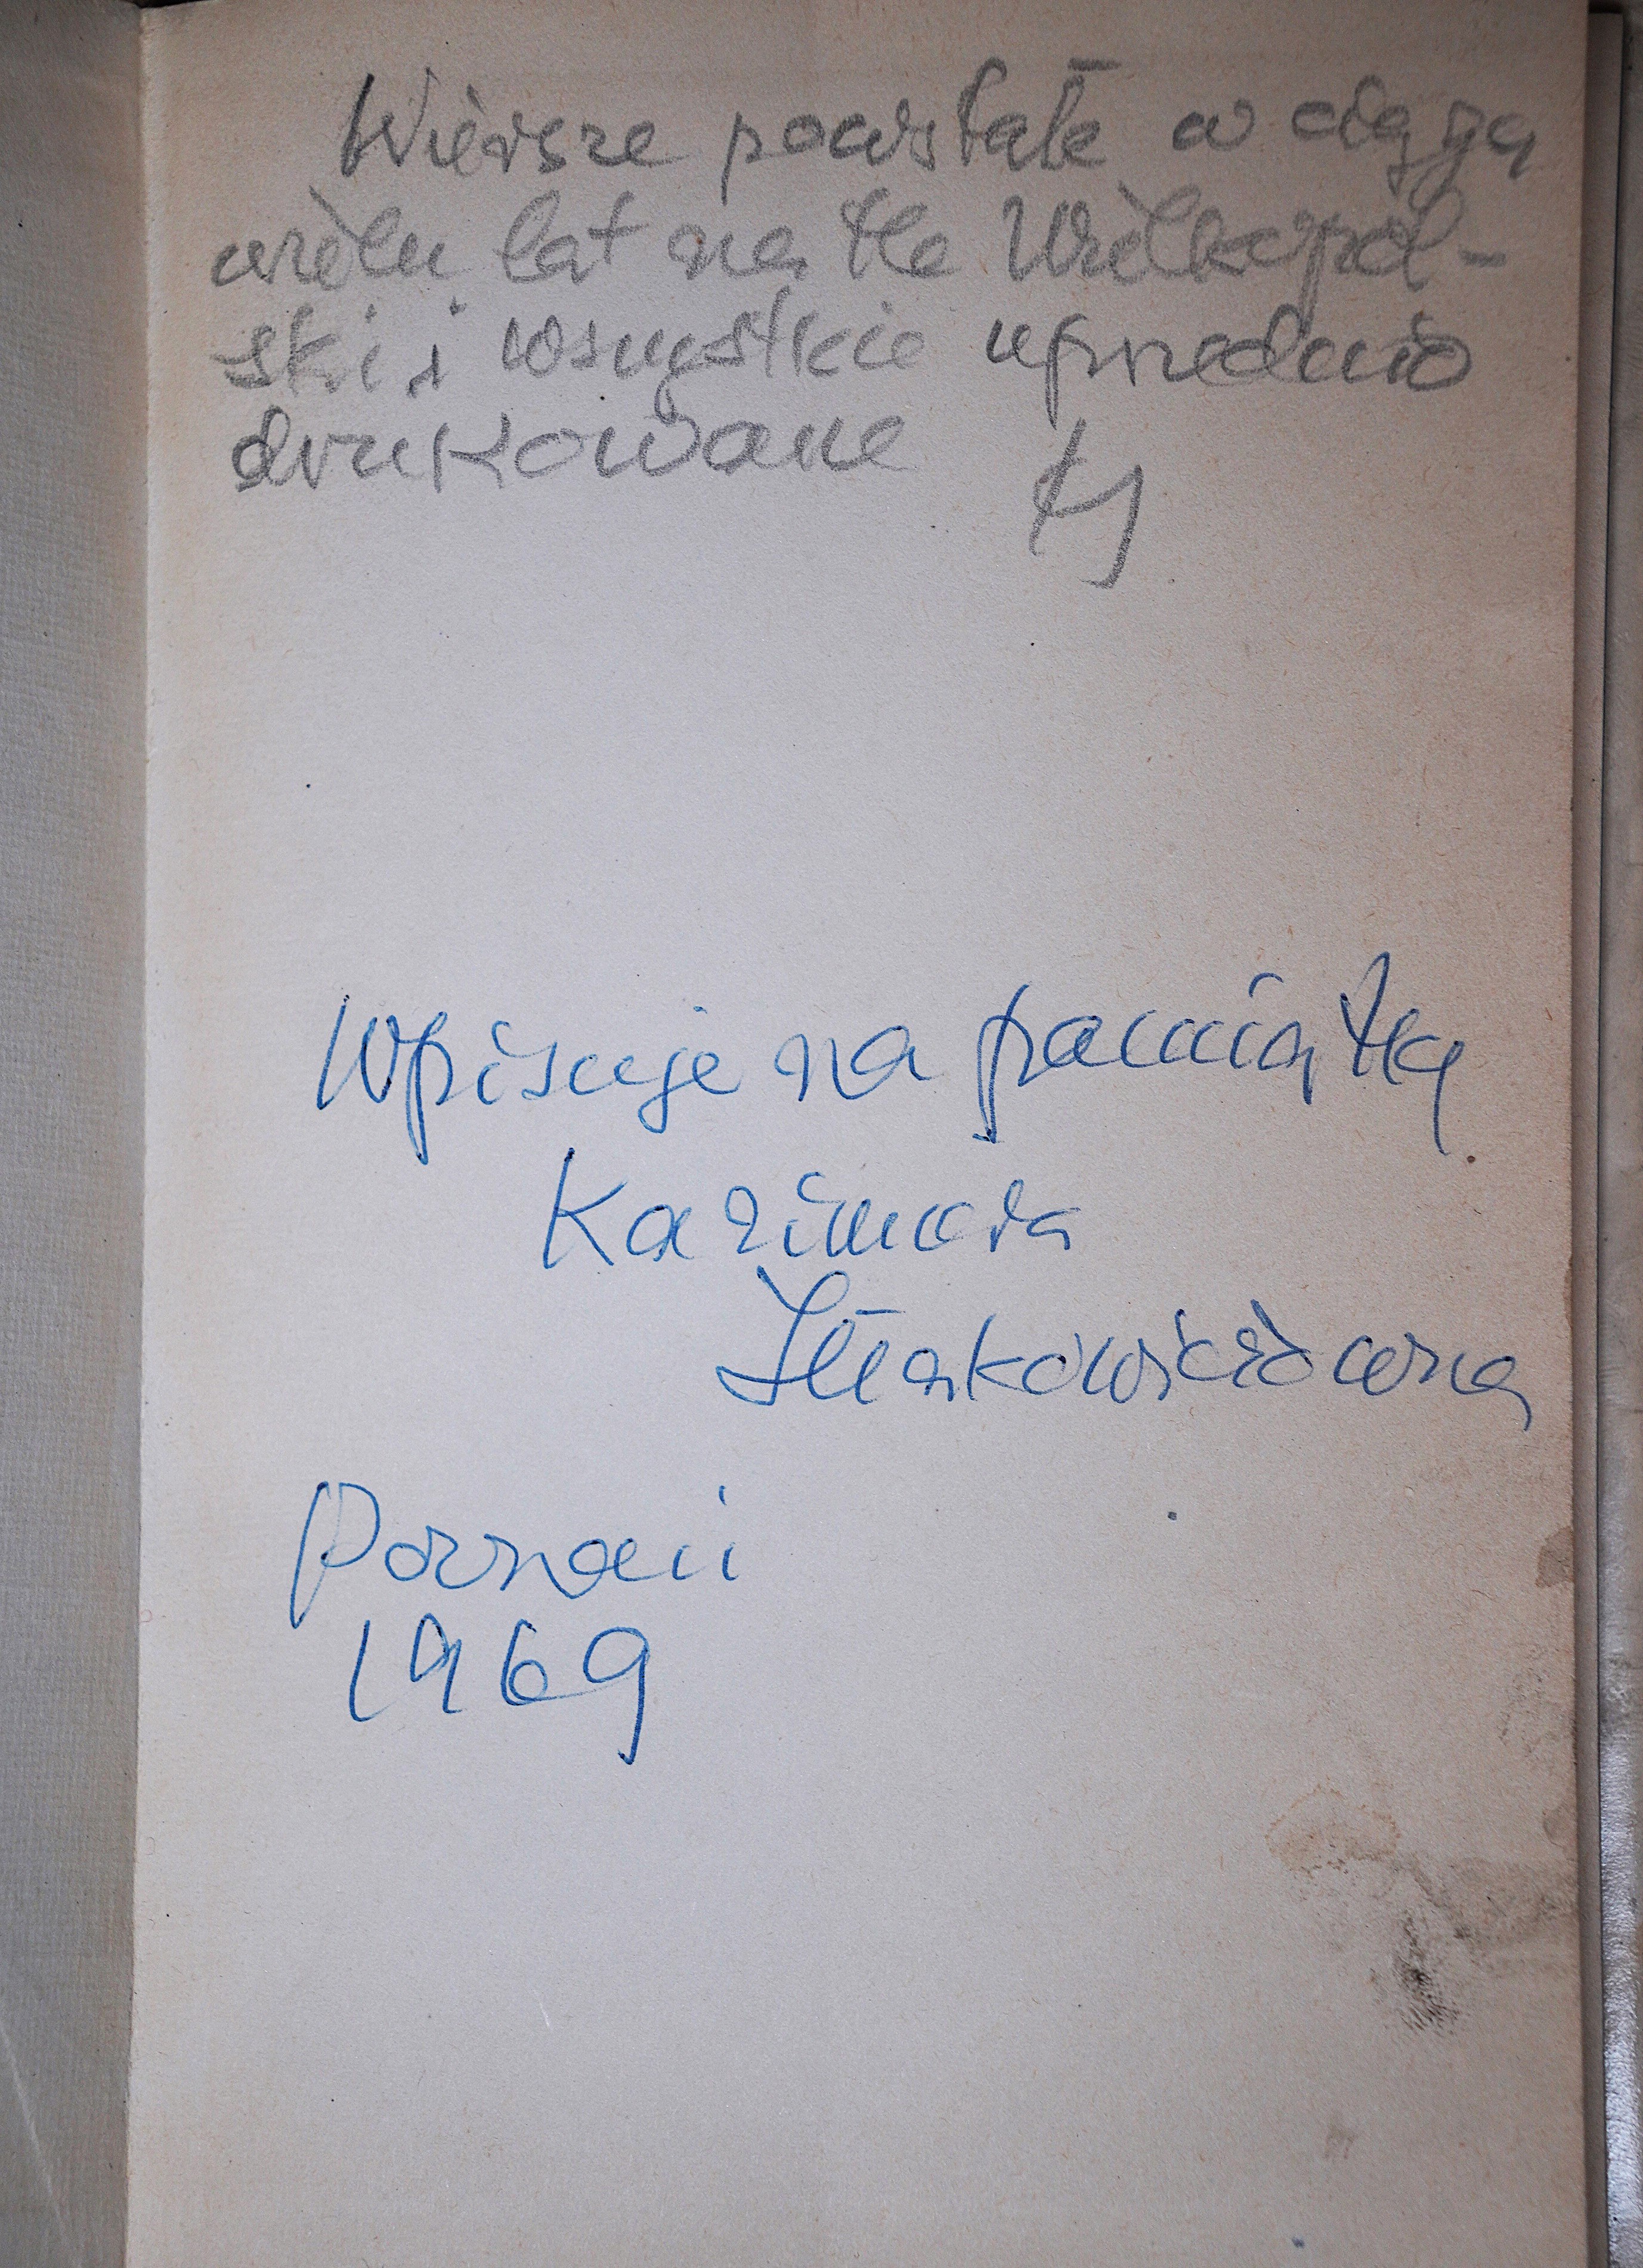 Wiersze powstałe w ciągu
wielu lat na tle Wielkopol-
ski i wszystkie uprzednio
drukowane KI
Wpisuje na pamiątkę
Kazimiera
Iłłakowiczówna
Poznań
1969